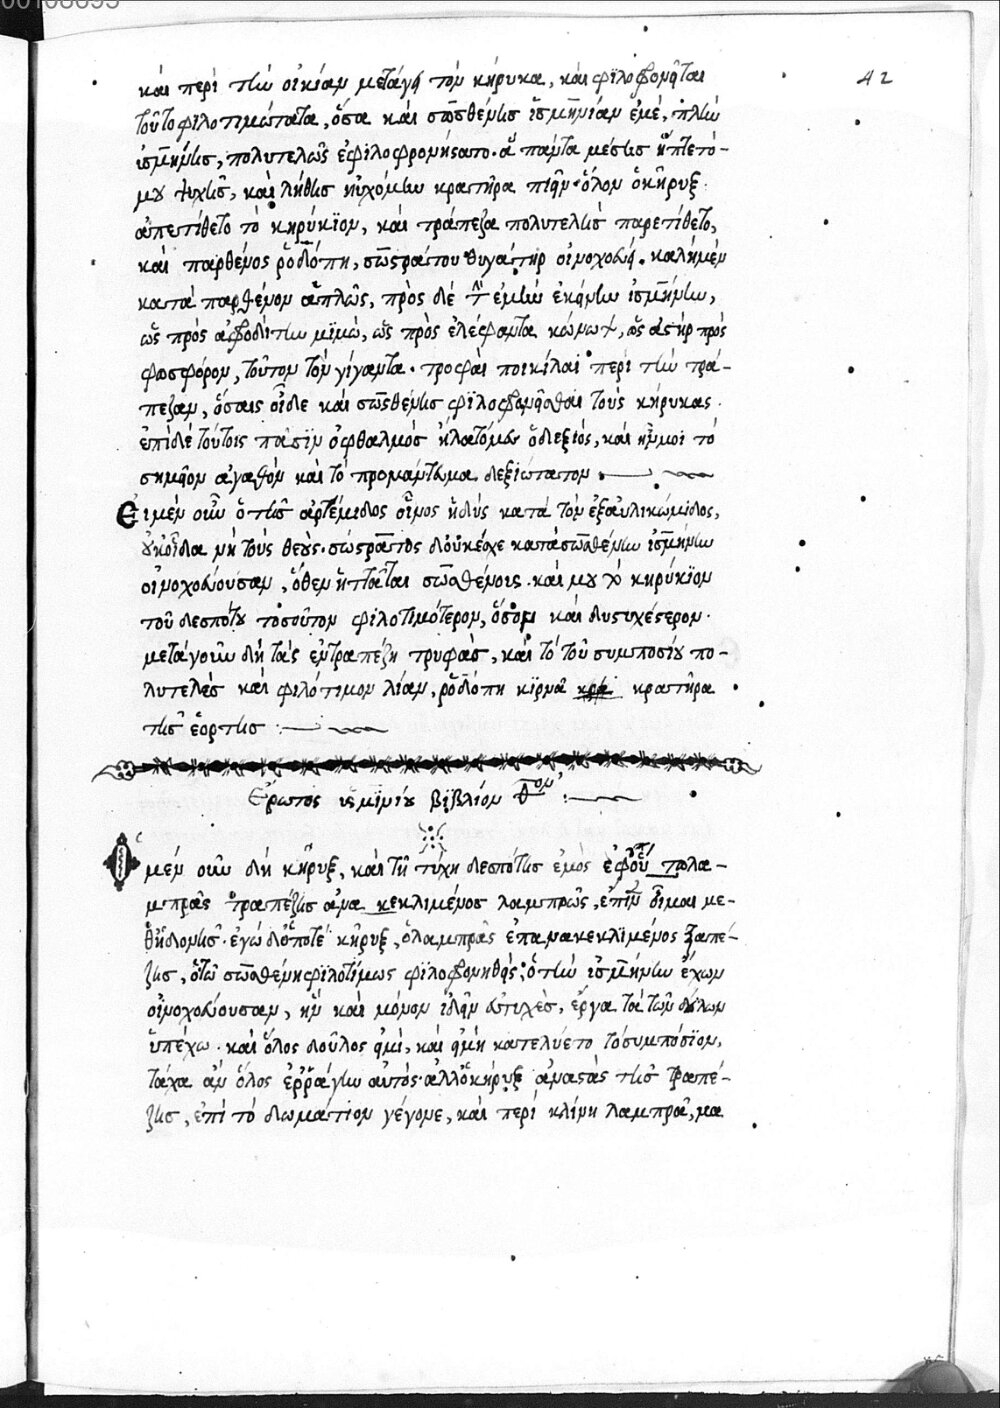 00108695
42
καὶ περὶ τὴν οἰκίαν μετάγει τὸν κήρυκα, καὶ φιλοφρονεῖται
τοῦτο φιλοτιμώτατα, ὅσα καὶ σωσθένης ἰσμηνίαν ἐμέ, πλὴν
ἰσμήνης, πολυτελῶς ἐφιλοφρονήσατο. ἃ πάντα μέσης ἥπτετό-
μου ψυχῆς, καὶ λήθης ηὐχόμην κρατῆρα πιεῖν ὅλον ὁ κήρυξ.
ἀπετίθετο τὸ κηρύκϊον, καὶ τράπεζα πολυτελὴς παρετίθετο,
καὶ παρθένος ῥοδόπη, σωστράτου θυγάτηρ οἰνοχοεῖ. καλὴ μὲν
κατὰ παρθένον ἁπλῶς, πρὸς δὲ τὴν ἐμὴν ἐκείνην ἰσμήνην,
ὡς πρὸς ἀφροδίτην μϊμώ, ὡς πρὸς ἐλέφαντα κώνωψ, ὡς ἀστὴρ πρὸς
φωσφόρον, τοῦτον τὸν γίγαντα. τροφαὶ ποικίλαι περὶ τὴν τρά-
πεζαν, ὅσαις οἶδε καὶ σωσθένης φϊλοφρονεῖσθαι τοὺς κήρυκας.
ἐπὶ δὲ τούτοις πᾶσϊν ὀφθαλμὸς ἥλατό μου ὁ δεξιός, καὶ ἦν μοι τὸ
σημεῖον ἀγαθὸν καὶ τὸ προμάντευμα δεξιώτατον.
Εἰ μὲν οὖν ὁ τῆς ἀρτέμιδος οἶνος ἡδὺς κατὰ τὸν ἐξ αὐλικώμιδος,
οὐκ οἶδα μὴ τοὺς θεούς. σώστρατος δ' οὐκ ἔσχε κατὰ σωσθένην ἰσμήνην
οἰνοχοοῦσαν, ὅθεν ἥττηται σωσθένους. καί μου τὸ κηρύκϊον
τοῦ δεσπότου τοσοῦτον φϊλοτιμότερον, ὅσον καὶ δυστυχέστερον.
μετάγουν δὴ τὰς ἐν τραπέζῃ τρυφάς, καὶ τὸ τοῦ συμποσίου πο-
λυτελὲς καὶ φιλότιμον λίαν, ῥοδόπη κϊρνᾷ κρα κρατῆρα
τῆς ἑορτῆς
Ἔρωτος ὑσμϊνίου βιβλίον θον
Ὁ μὲν οὖν δὴ κήρυξ, καὶ τῇ τύχῃ δεσπότης ἐμὸς ἐφ' οὕτω λα-
μπρᾶς τραπέζης ἀνακεκλιμένος λαμπρῶς, ἔπιεν οἶμαι με-
θ' ἡδονῆς. ἐγὼ δ' ὁ ποτὲ κήρυξ, ὁ λαμπρᾶς ἐπανακεκλϊμένος τραπέ-
ζης, ὁ τῷ σωσθένῃ φϊλοτίμως φϊλοφρονηθείς, ὁ τὴν ἰσμήνην ἔχων
οἰνοχοοῦσαν, ἣν καὶ μόνον ἰδεῖν εὐτυχές, ἔργα τὰ τῶν δούλων
ὑπέχω. καὶ ὅλος δοῦλος εἰμί, καὶ εἰ μὴ κατελύετο τὸ συμπόσϊον,
τάχα ἂν ὅλος ἐρράγην αὐτός. ἀλλ' ὁ κήρυξ ἀναστὰς τῆς τραπέ-
ζης, ἐπὶ τὸ δωμάτιον γέγονε, καὶ περὶ κλίνῃ λαμπρᾷ, μα